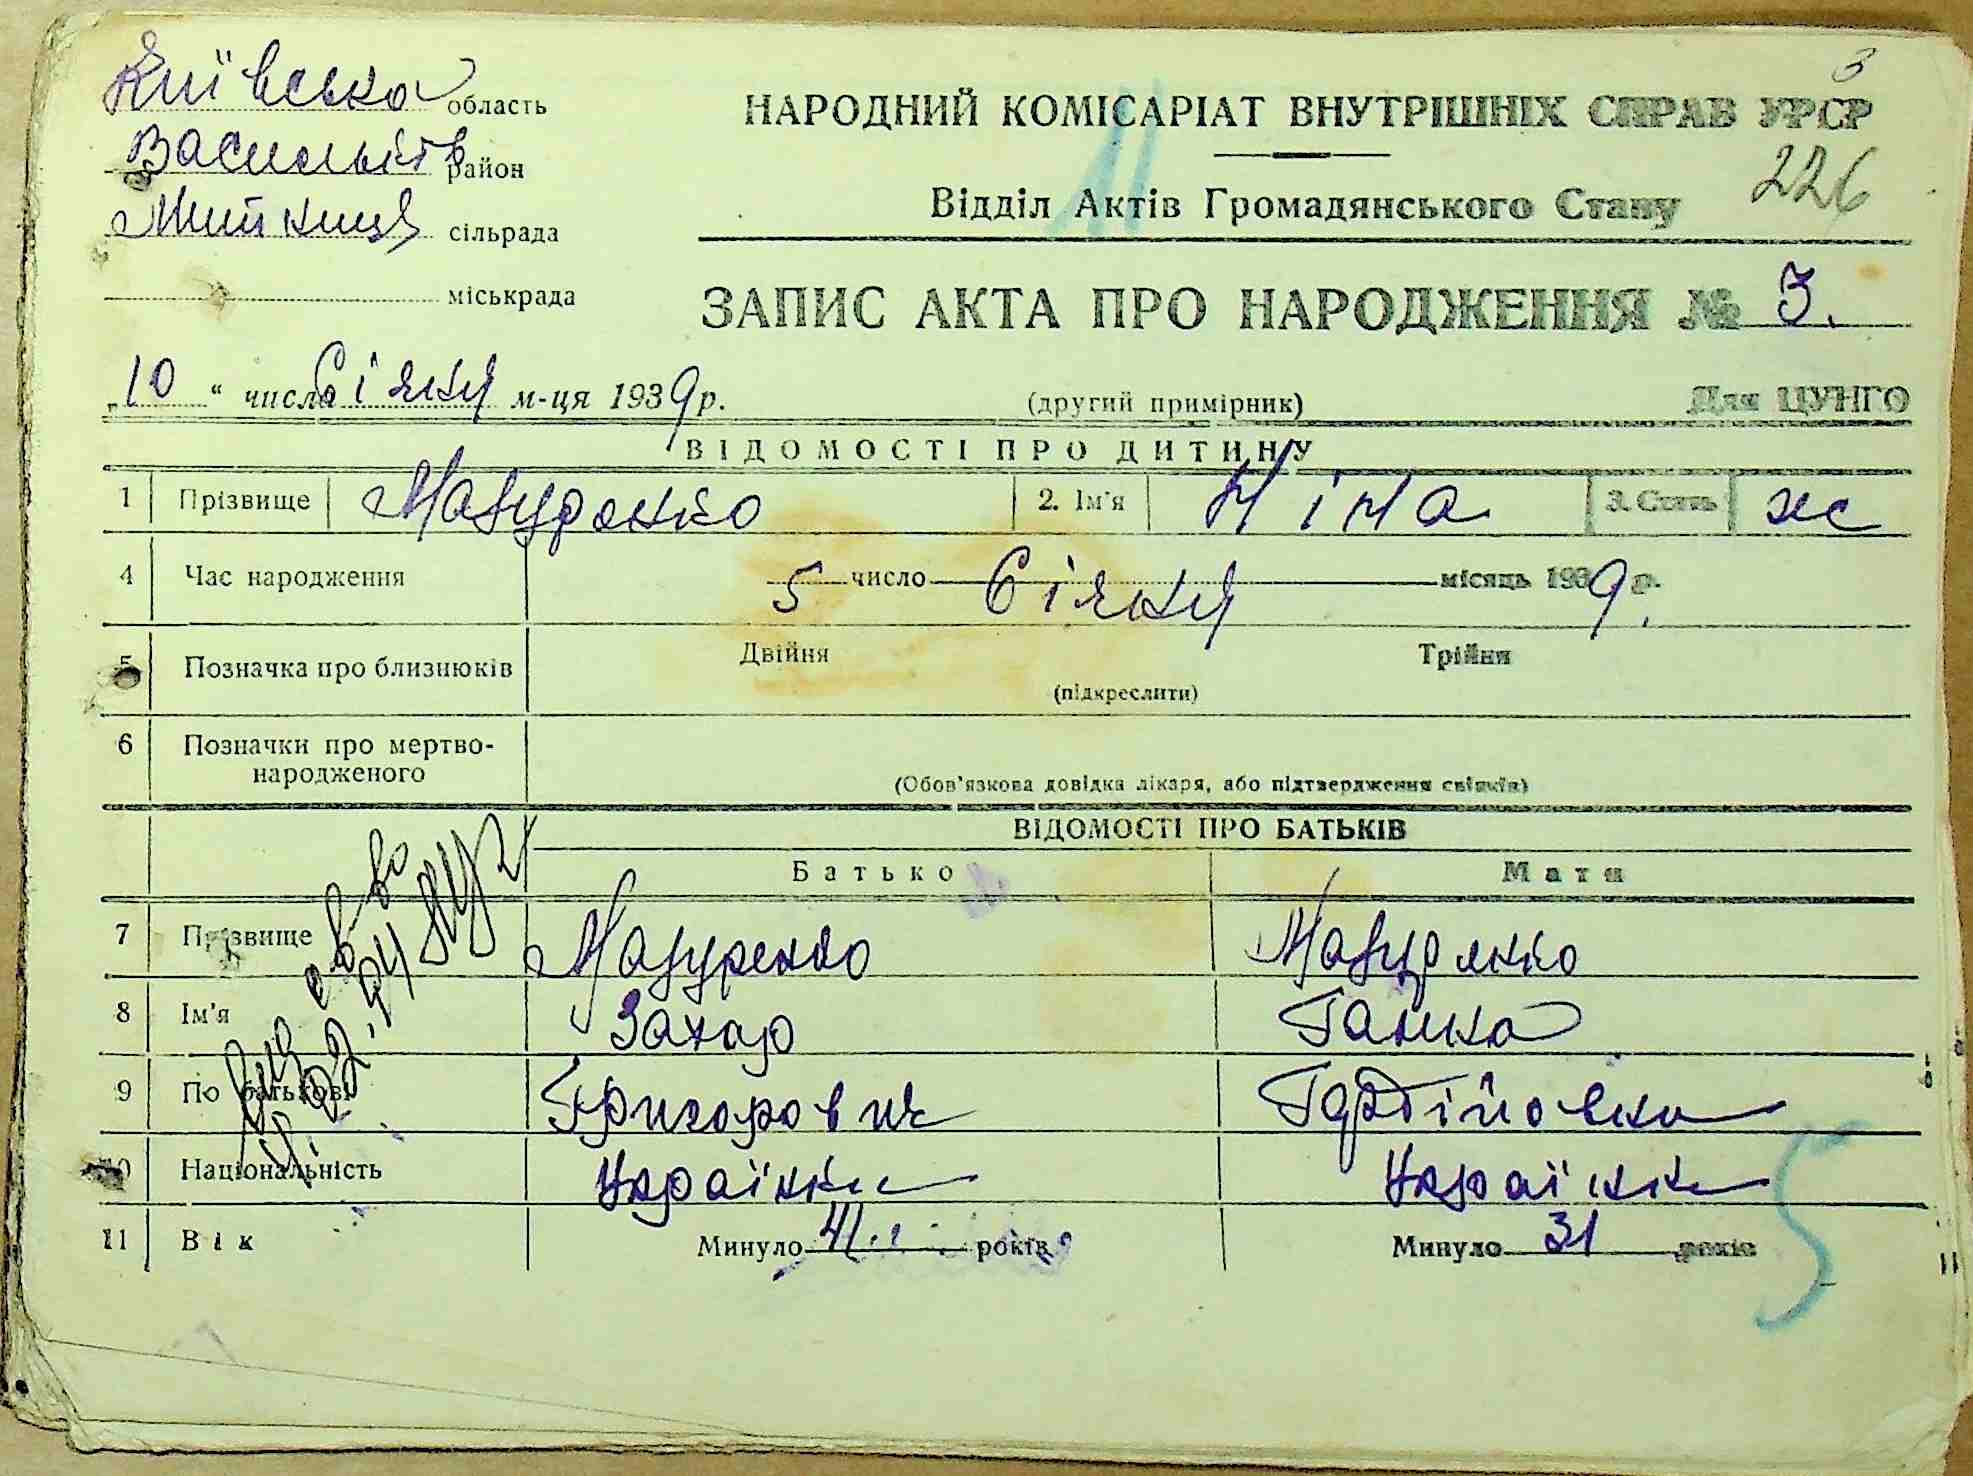 3
Київська область
Васильків район
Митниця сільрада
міськрада
НАРОДНИЙ КОМІСАРІАТ ВНУТРІШНІХ СПРАВ УРСР
226
Відділ Актів Громадянського Стану
ЗАПИС АКТА ПРО НАРОДЖЕННЯ № 3.
„10 “ числа Січня м-ця 1939 р. (другий примірник) Для ЦУНГО
ВІДОМОСТІ ПРО ДИТИНУ
1 Прізвище Мазуренко 2. Ім'я Ніна 3. Стать ж
4 Час народження 5 число Січня місяць 1939 р.
5 Позначка про близнюків Двійня Трійня
(підкреслити)
6 Позначки про мертво-
народженого
(Обов'язкова довідка лікаря, або підтвердження свідків)
ВІДОМОСТІ ПРО БАТЬКІВ
Батько Мати
7 Прізвище Мазуренко Мазуренко
8 Ім'я Захар Ганна
9 По батькові Григорович Гордіївна
10 Національність
11 Вік Минуло 41 років Минуло 31 років
5